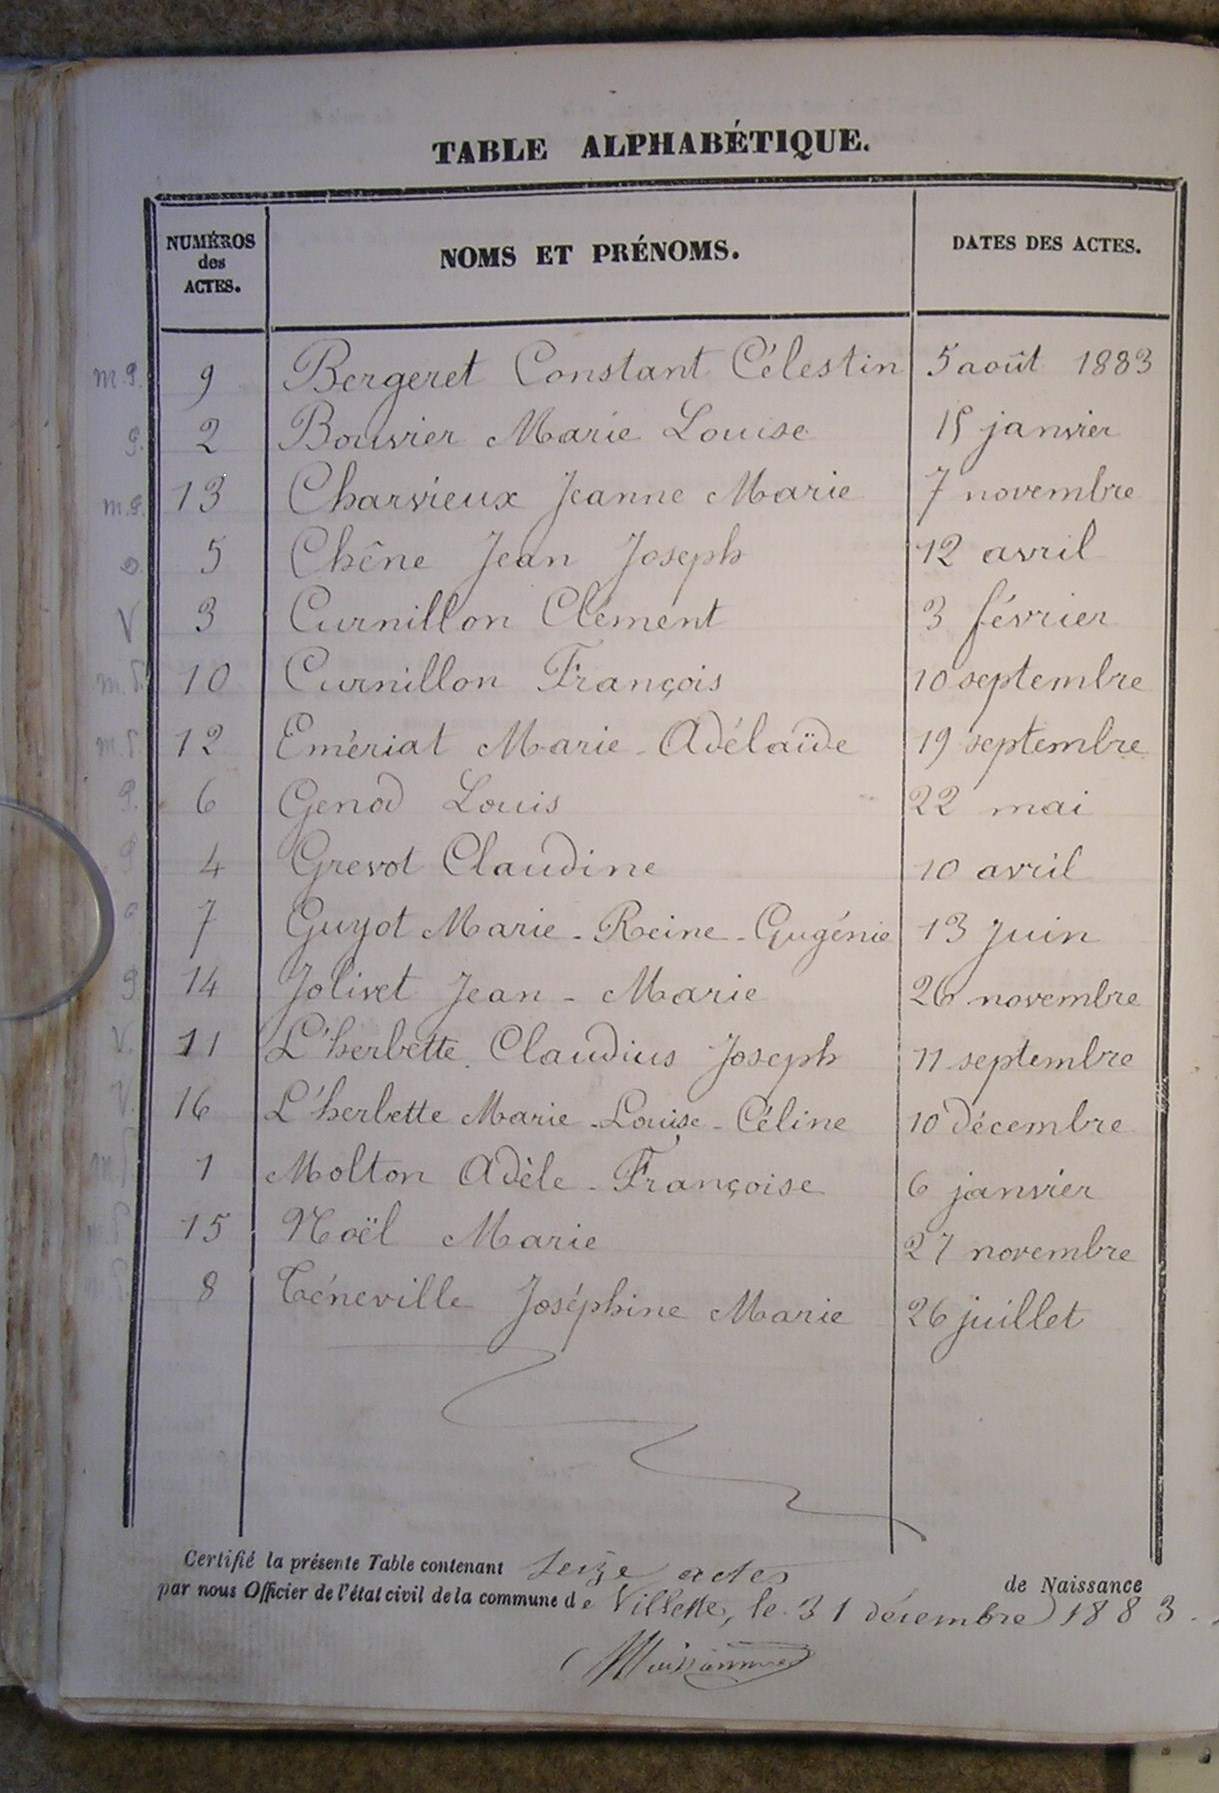 TABLE ALPHABÉTIQUE.
NUMÉROS des ACTES. NOMS ET PRÉNOMS. DATES DES ACTES.
9 Bergeret Constant Célestin 5 août 1883
2 Bouvier Marie Louise 15 janvier
13 Charvieux Jeanne Marie 7 novembre
5 Chêne Jean Joseph 12 avril
V 3 Curnillon Clément 3 février
10 Curnillon François 10 septembre
12 Emériat Marie-Adélaïde 19 septembre
6 Genod Louis 22 mai
4 Grevot Claudine 10 avril
7 Guyot Marie-Reine-Gugénie 13 Juin
14 Jolivet Jean-Marie 26 novembre
V. 11 L'herbette Claudius Joseph 11 septembre
V. 16 L'herbette Marie-Louise-Céline 10 décembre
1 Molton Adèle-Françoise 6 janvier
15 Noël Marie 27 novembre
8 Téneville Joséphine Marie 26 juillet
Certifié la présente Table contenant seize actes de Naissance
par nous Officier de l'état civil de la commune de Villette, le 31 décembre 1883.